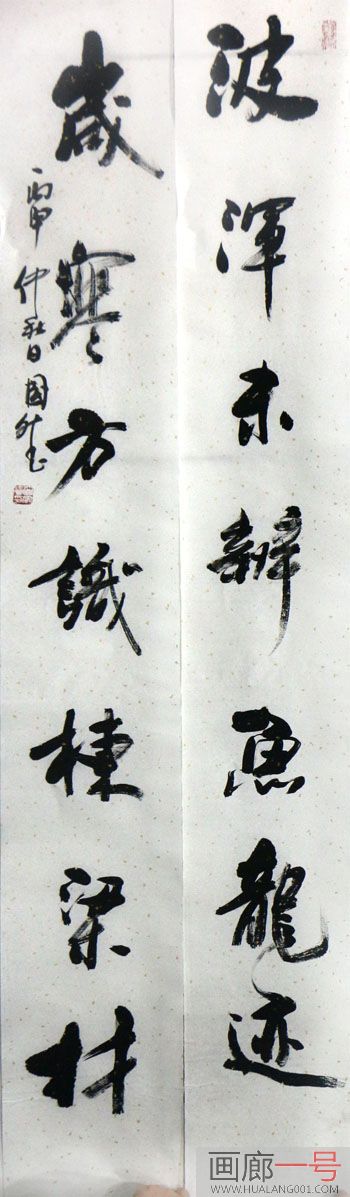 波渾未辨魚龍迹
歲寒方識棟梁材
丙申仲秋日國
画廊一号
WWW.HUALANG001.COM